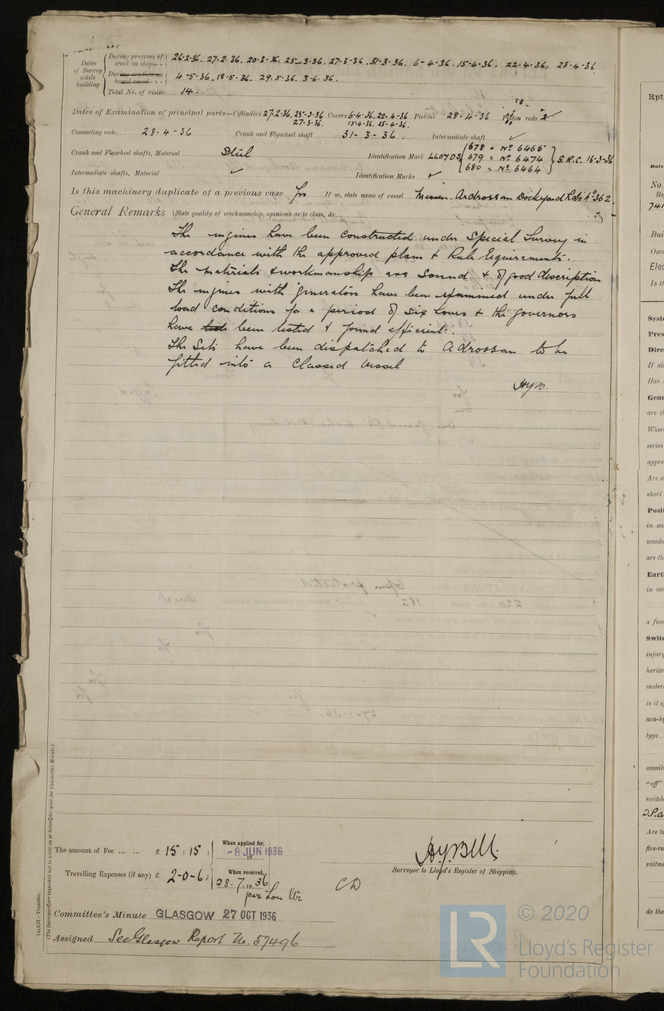 Dates of Survey while building
During progress of work in shops - - 26·2·36. 27·2·36. 20·3·36. 25-3·36. 27·3·36. 31·3·36. 6-4·36. 15·4·36. 22·4·36. 28·4·36
4-5·36. 18·5·36. 29·5·36. 3·6·36.
Total No. of visits 14
Dates of Examination of principal parts—Cylinders 27·2·36, 25-3-36 27·3·36 Covers 6·4·36. 22-4-36 15·4·36. 28·4·36. Pistons 28-4-36 rods
Connecting rods 28-4-36 Crank and Flywheel shaft 31-3-36. Intermediate shaft ✓
Crank and Flywheel shafts, Material Steel Identification Mark LLOYDS 678 = No 6466 679 = No 6474 680 = No 6464 S.R.C. 16-3-36
Intermediate shafts, Material ✓ Identification Marks ✓
Is this machinery duplicate of a previous case Yes If so, state name of vessel Messrs. Ardrossan Dockyard Ltd No 362
General Remarks (State quality of workmanship, opinions as to class, &c.
The engines have been constructed under Special Survey in
accordance with the approved plans & Rule Requirements.
The materials & workmanship are sound & of good description
The engines with generators have been examined under full
load conditions for a period of six hours & the governors
have been tested & found efficient.
The Sets have been dispatched to Adrossan to be
fitted into a classed vessel
The amount of Fee ... ... £ 15 : 15 : When applied for, -8 JUN 1936
Travelling Expenses (if any) £ 2-0-6 : When received, 28·7·1936
Surveyor to Lloyd's Register of Shipping.
Committee's Minute GLASGOW 27 OCT 1936
Assigned See Glasgow Report No. 57496
(The Surveyors are requested not to write on or below the space for Committee's Minute.)
© 2020
LR Lloyd's Register
Foundation